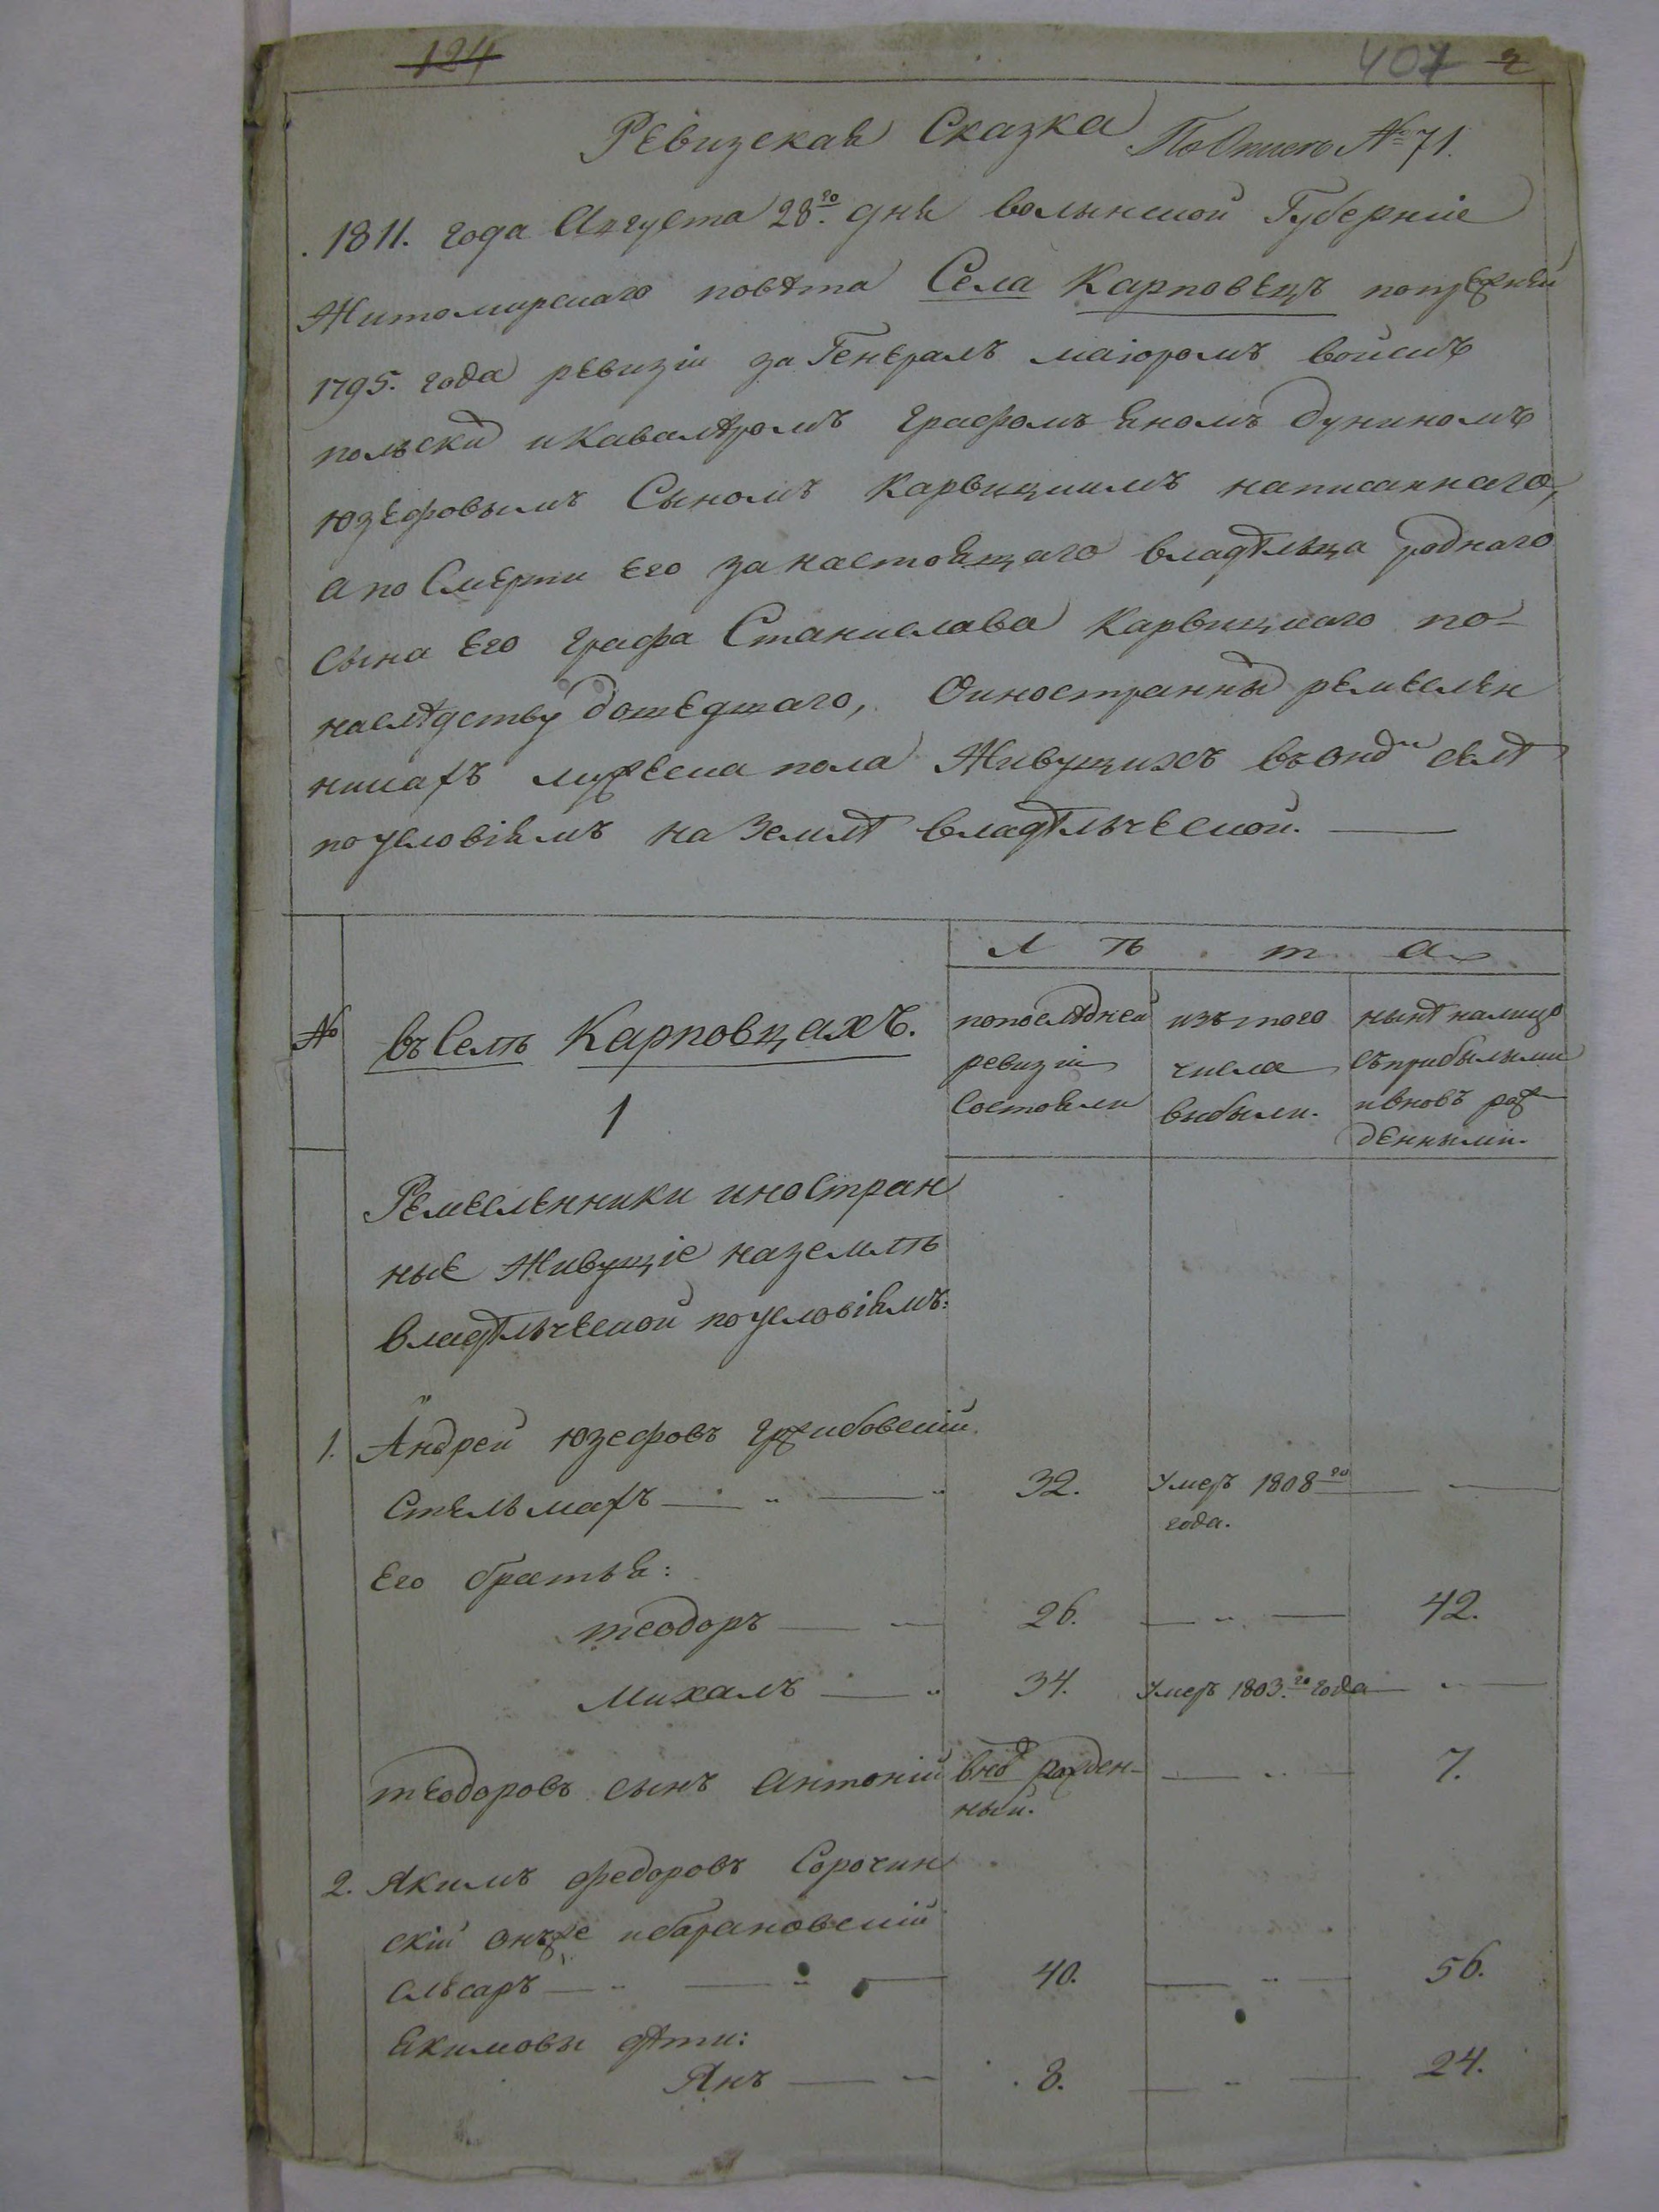 124
407 2
Ревизская Сказка По Описи № 71.
1811. года Августа 28го. дня волынской Губерніе
Житомирскаго повѣта Села Карповецъ попрежней
1795. года ревизіи за Генералъ маіоромъ войскъ
польски и Кавалѣромъ Графомъ Яномъ Дуниномъ
юзефовымъ Сыномъ Карвицкимъ написаннаго,
а по Смерти его за настоящаго владѣльца роднаго
Сына его Графа Станислава Карвицкаго по-
наслѣдству дошедшаго, О иностранны ремеслен
никахъ мужеска пола Живущихъ въ онд селѣ
по условіямъ на Землѣ владѣльческой.
Л ѣ т а
№
въ Селѣ Карповцахъ.
1
попослѣдней
ревизіи
состояли
изъ того
числа
выбыли.
нынѣ налицо
съ прибылыми
и вновь рож
денными.
Ремесленники иностран
ные Живущіе на землѣ
владѣльческой по условіямъ:
1. Андрей юзефовъ Гржибовскій
Стельмахъ 32. Умеръ 1808го
года.
Его братья:
теодоръ 26. 42.
Михалъ 34. Умеръ 1803.го года
теодоровъ сынъ Антоній внов рожден- 7.
ный.
2. Якимъ федоровъ Сорочин
скій онъже и барановскій
слѣсаръ 40. 56.
Якимовы дѣти:
Янъ 8. 24.